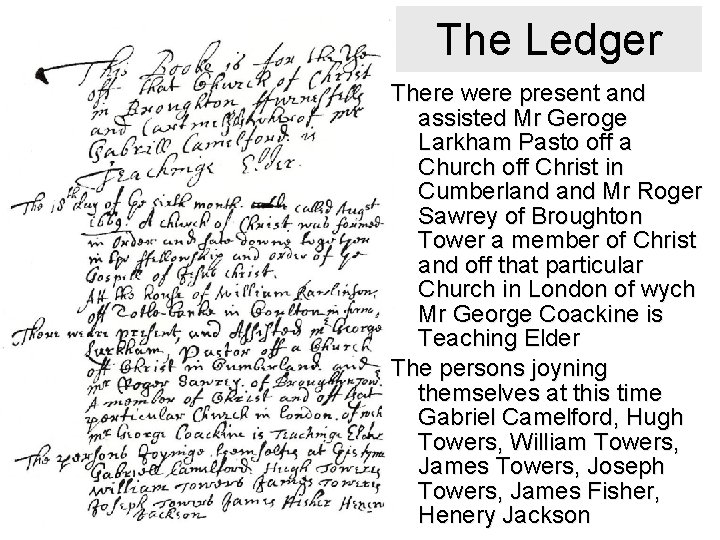 The Ledger
This Booke is for the Use
off that Church of Christ
in Broughton ffurnesfells
and Cartmell wherof mr
Gabriell Camelford is
Teachinge Elder.
The 18th day of ye sixth month called Augst
1669. A church of Christ was formed
in order and sate downe together
in the ffellowship and order of ye
Gospell of Jesus christ.
Att the house of William Rawlinson,
off Tottlebanke in Coulton in furns,
There weare present, and Assisted mr George
Larkham, Pastor off a Church
off Christ in Cumberland and
mr Roger Sawrey of Broughton Tow.
A member of Christ and off that
perticular Church in London, of wch
mr George Coackine is Teachinge Elder
The persons Joyninge themselves at this tyme
Gabriell Camelford, Hugh Towers
William Towers James Towers
Joseph Towers James Fisher Henery
Jackson
There were present and
assisted Mr Geroge
Larkham Pasto off a
Church off Christ in
Cumberland and Mr Roger
Sawrey of Broughton
Tower a member of Christ
and off that particular
Church in London of wych
Mr George Coackine is
Teaching Elder
The persons joyning
themselves at this time
Gabriel Camelford, Hugh
Towers, William Towers,
James Towers, Joseph
Towers, James Fisher,
Henery Jackson